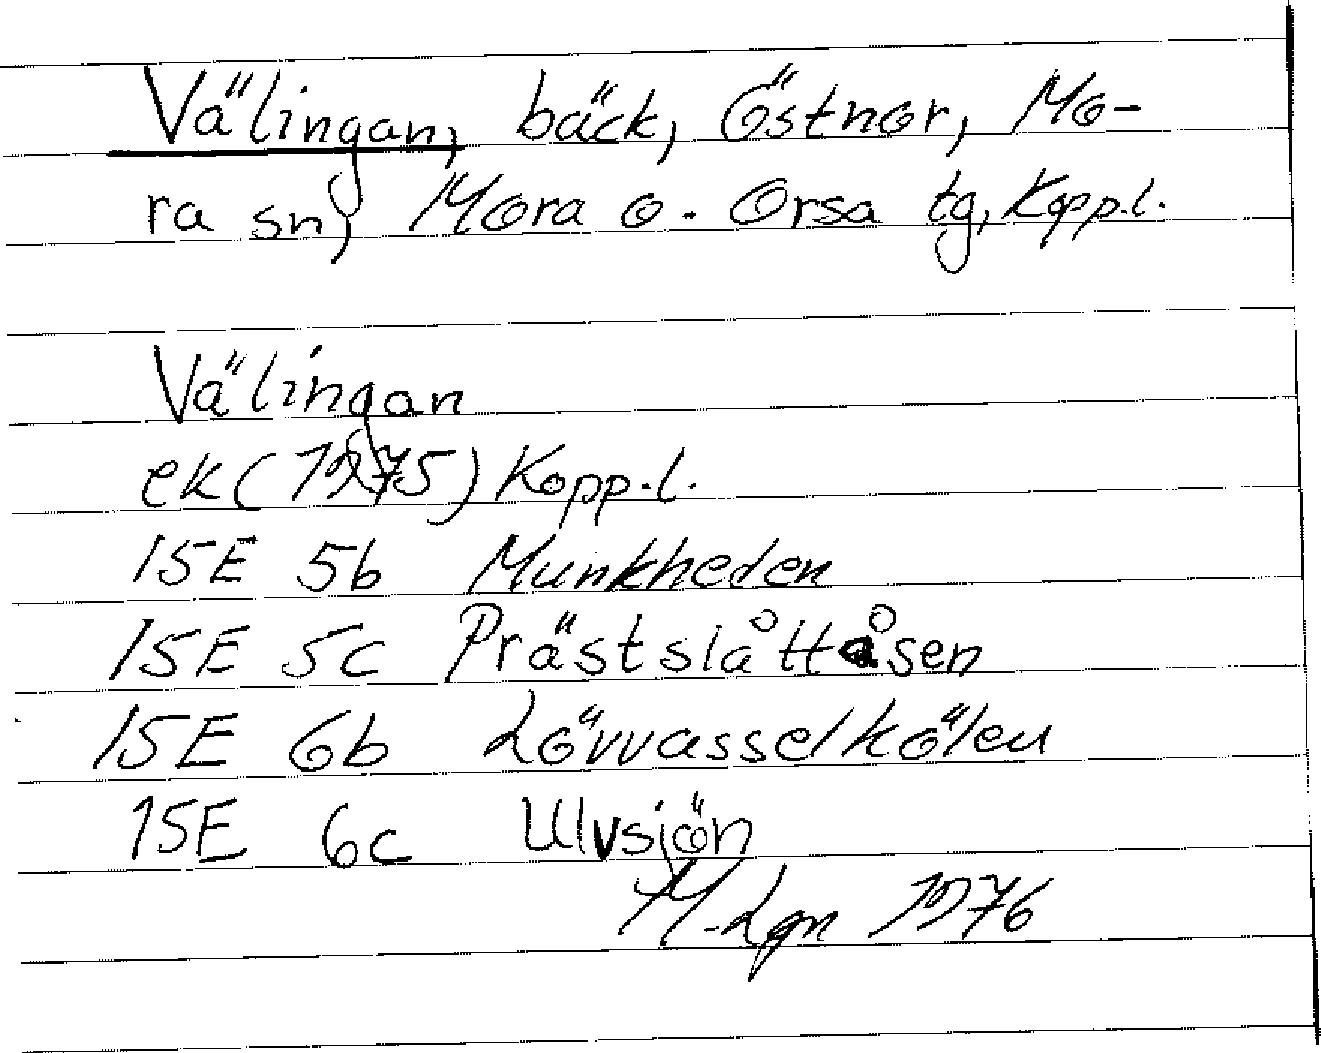 Välingan, bäck, Östnor, Mo-
ra sn, Mora o. Orsa tg, Kopp.l.
Välingan
ek (1975) Kopp.l.
15E 5b Munkheden
15E 5c Prästslåttåsen
15E 6b Lövvasselkölen
15E 6c Ulvsjön
M-Lgn 1976